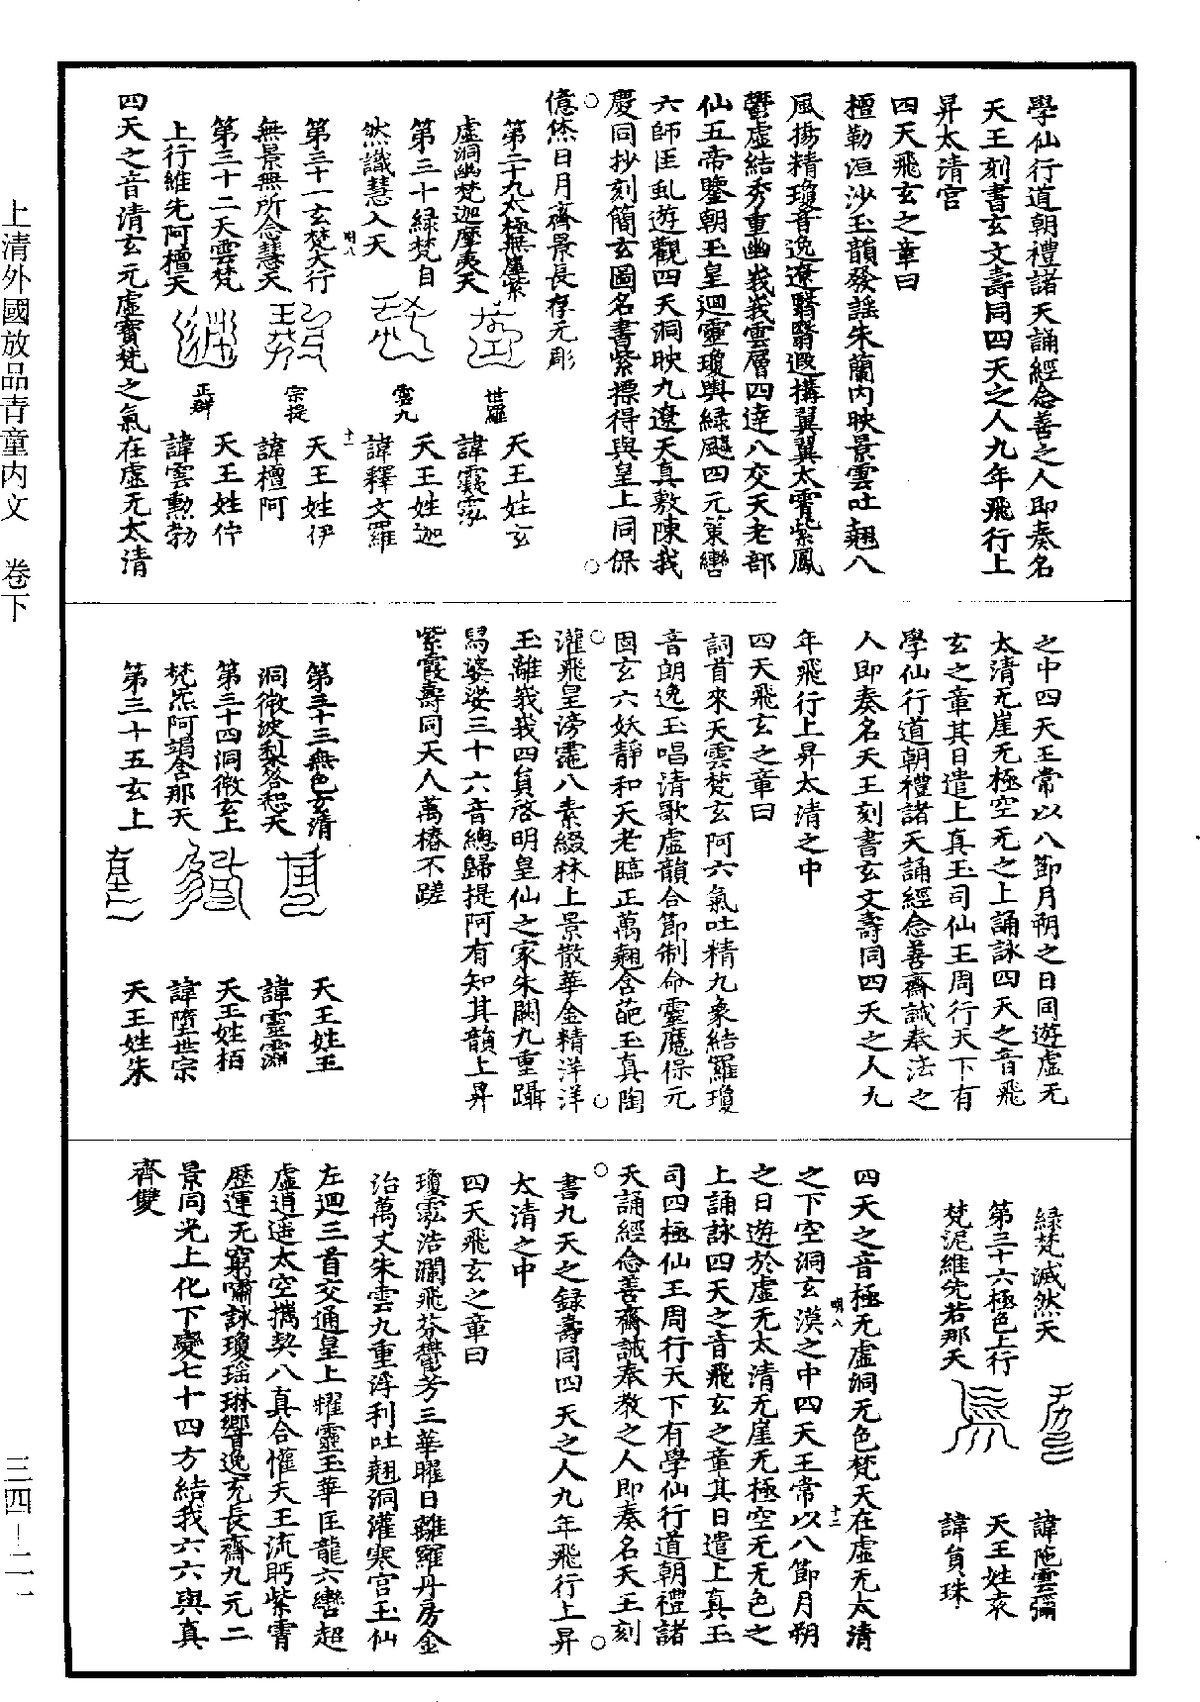 學仙行道朝禮諸天誦經念善之人即奏名
天王刻書玄文壽同四天之人九年飛行上
昇太清宮
四天飛玄之章曰
檀勒洹沙玉韻發謠朱蘭內映景雲吐翹八
風揚精瓊音逸遼翳翳遐搆翼翼太霄紫鳳
鬱虛結秀重幽峩峩雲層四達八交天老部
仙五帝鑒朝玉皇迴靈瓊輿綠飈四元策轡
六師匡虬遊觀四天洞映九遼天真敷陳我
慶同抄刻簡玄圖名書紫摽得與皇上同保
億炁日月齋景長存无彫
第二十九太極無崖紫
虛洞幽梵迦摩夷天
世羅
天王姓玄
諱霐泓
第三十綠梵自
然識慧入天
雲九
天王姓迦
諱釋文羅
明八
第三十一玄梵大行
無景無所念慧天
宗提
十一
天王姓伊
諱檀阿
第三十二天雲梵
上行維先阿檀天
正群
天王姓佇
諱雲勲勃
四天之音清玄元虛寶梵之氣在虛无太清
之中四天王常以八節月朔之日同遊虛无
太清无崖无極空无之上誦詠四天之音飛
玄之章其日遣上真玉司仙王周行天下有
學仙行道朝禮諸天誦經念善齋誠奉法之
人即奏名天王刻書玄文壽同四天之人九
年飛行上昇太清之中
四天飛玄之章曰
詞首來天雲梵玄阿六氣吐精九象結羅瓊
音朗逸玉唱清歌虛韻合節制命靈魔保元
固玄六妖靜和天老臨正萬翹含葩玉真陶
灌飛皇滂霐八素綴林上景散華金精洋洋
玉離峩峩四真啓明皇仙之家朱闕九重躡
舄婆娑三十六音總歸提阿有知其韻上昇
紫霞壽同天人萬椿不蹉
第三十三無色玄清
洞微波梨答惒天
天王姓王
諱靈霝
第三十四洞微玄上
梵炁阿竭含那天
天王姓栢
諱墮世宗
第三十五玄上
天王姓朱
綠梵滅然天
諱陁雲彌
第三十六極色上行
梵泥維先若那天
天王姓袁
諱負珠
四天之音極无虛洞无色梵天在虛无太清
明八
十二
之下空洞玄漠之中四天王常以八節月朔
之日遊於虛无太清无崖无極空无无色之
上誦詠四天之音飛玄之章其日遣上真玉
司四極仙王周行天下有學仙行道朝禮諸
天誦經念善齋誠奉教之人即奏名天王刻
書九天之錄壽同四天之人九年飛行上昇
太清之中
四天飛玄之章曰
瓊霐浩瀾飛芬鬱芳三華曜日離羅丹房金
治萬丈朱雲九重浮利吐翹洞灌寒宮玉仙
左迴三首交通皇上耀靈玉華匡龍六轡超
虛逍遥太空攜契八真合懽天王流眄紫霄
歷運无窮嘯詠瓊瑤琳響逸无長齋九元二
景同光上化下變七十四方結我六六與真
齊雙
上清外國放品青童內文　卷下
三四-二一